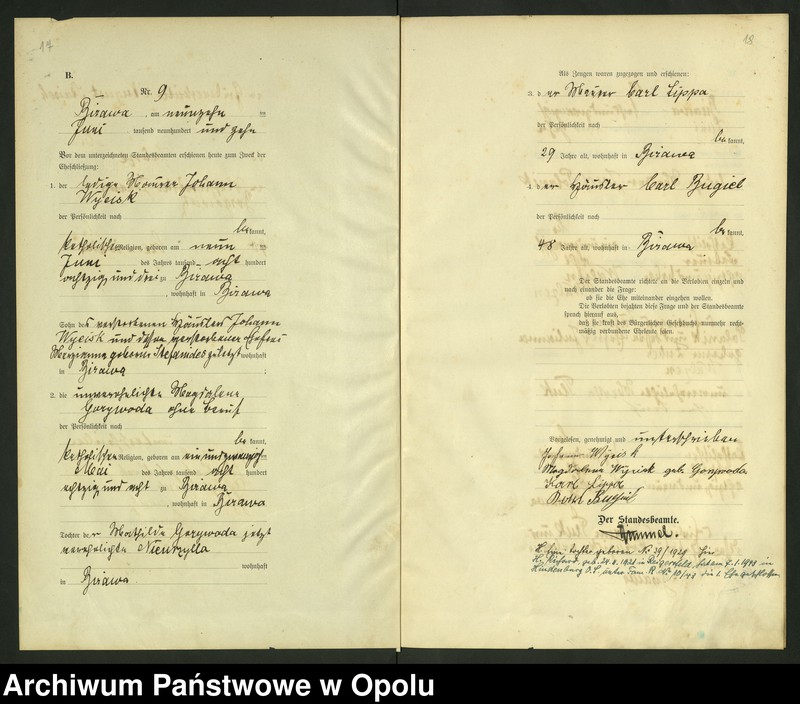 17
B.
Nr. 9
Birawa, am neunzehn
Juni tausend neunhundert und zehn
Vor dem unterzeichneten Standesbeamten erschienen heute zum Zweck der
Eheschließung:
1. der ledige Maurer Johann
Wyciśk
der Persönlichkeit nach
bekannt,
katholischer Religion, geboren am neun
Juni des Jahres tausend acht hundert
achtzig und drei zu Birawa
, wohnhaft in Birawa
Sohn des verstorbenen Häusler Johann
Wyciśk und dessen verstorbener Ehefrau
Marianna geborene zuletzt wohnhaft
in Birawa
2. die unverehelichte Magdalena
Gorzwoda ohne Beruf
der Persönlichkeit nach
bekannt,
katholischer Religion, geboren am ein und zwanzig
Mai des Jahres tausend acht hundert
achtzig und acht zu Birawa
, wohnhaft in Birawa
Tochter der Mathilde Gorzwoda jetzt
verehelichte
wohnhaft
in Birawa
18
Als Zeugen waren zugezogen und erschienen:
3. der Maurer Carl Lippa
der Persönlichkeit nach
bekannt,
29 Jahre alt, wohnhaft in Birawa
4. der Häusler Carl Bugiel
der Persönlichkeit nach
bekannt,
48 Jahre alt, wohnhaft in Birawa
Der Standesbeamte richtete an die Verlobten einzeln und
nach einander die Frage:
ob sie die Ehe miteinander eingehen wollen.
Die Verlobten bejahten diese Frage und der Standesbeamte
sprach hierauf aus,
daß sie kraft des Bürgerlichen Gesetzbuchs nunmehr recht-
mäßig verbundene Eheleute seien.
Vorgelesen, genehmigt und unterschrieben
Johann Wyciśk
Magdalena Wyciśk geb. Gorzwoda
Karl Lippa
Karl Bugiel
Der Standesbeamte.
Himmel.
Eine Tochter geboren N. 39/1921
geb. 24.8.1921 in Reigersfeld, hat am 7.1.1943 in
Hindenburg O.S. unter Fam. R. Nr. 10/43 die 1. Ehe geschlossen
Archiwum Państwowe w Opolu